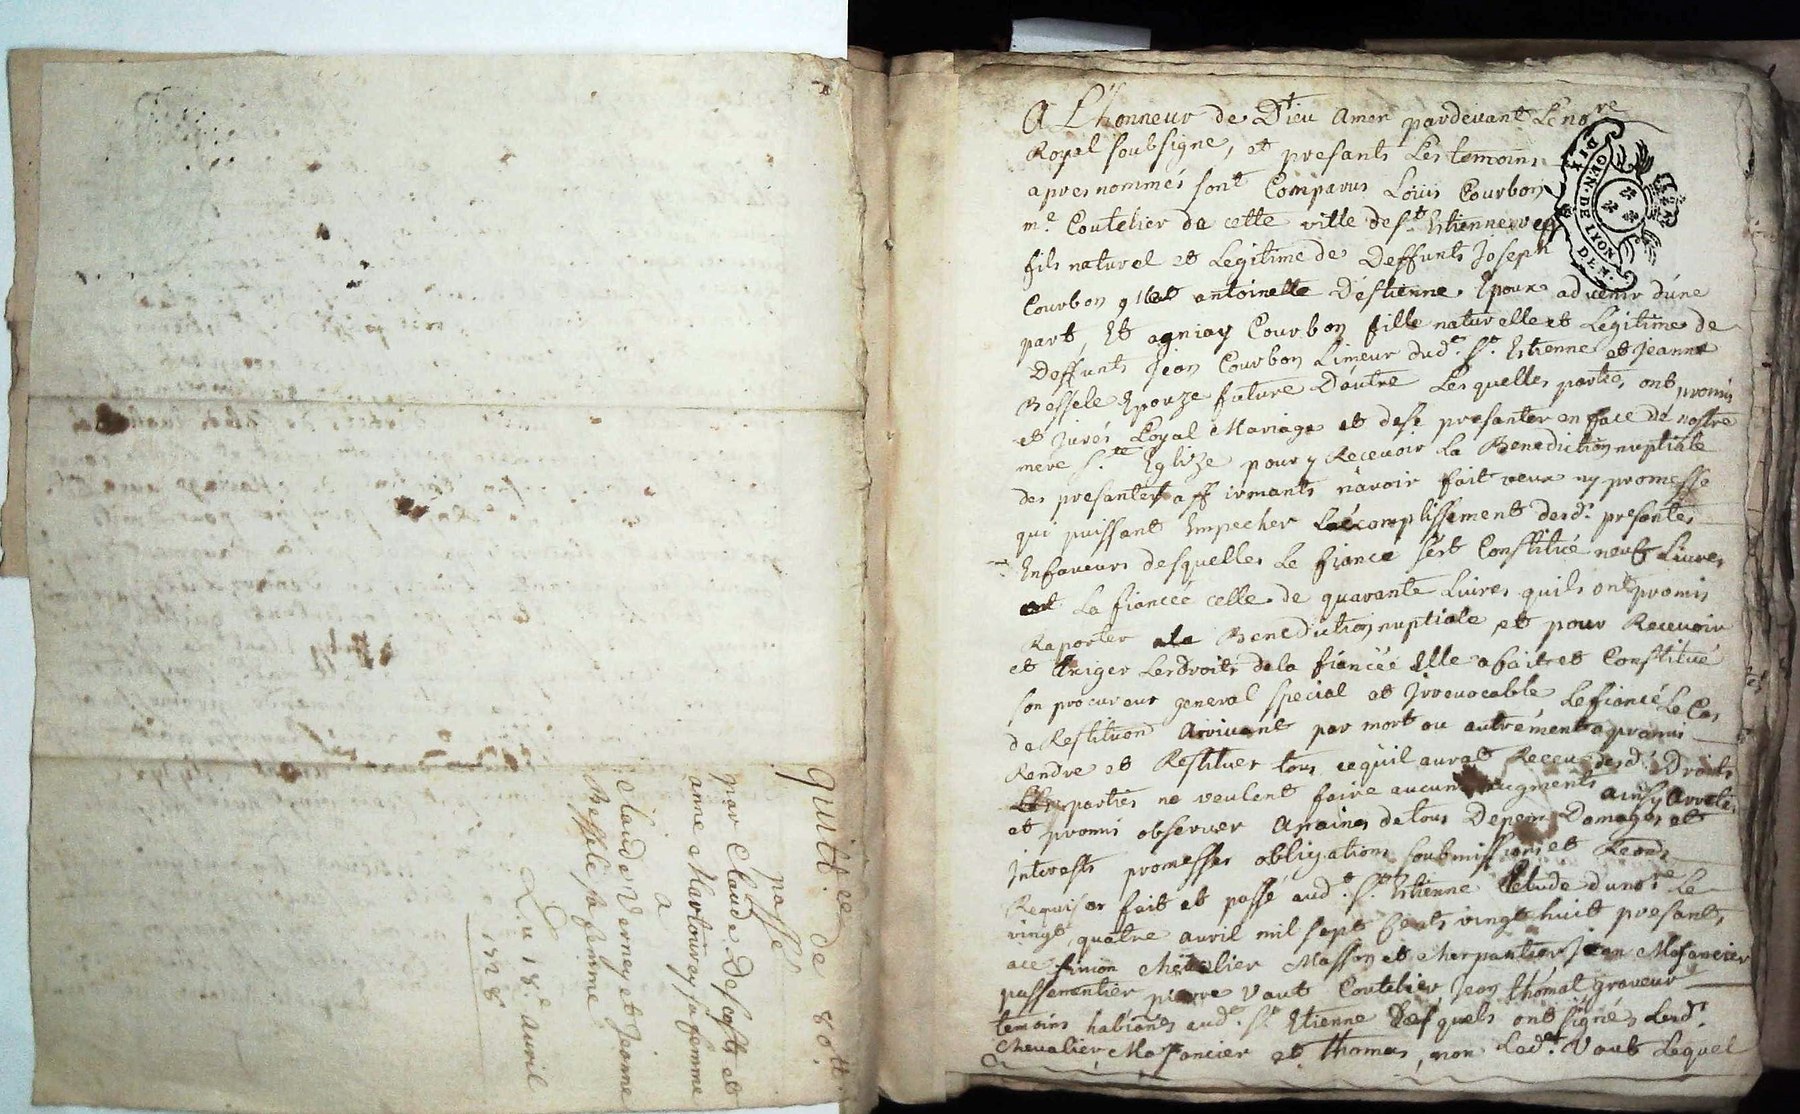 quitt.ce de 80tt.
passé
par Claude Descosts et
anne Marlourey sa femme
a
Claude Verney et Jeanne
Bessele sa femme
Du 18.e avril
1728
A L'honneur de Dieu Amen pardevant Le no.re
Royal soubsigne, et presants Les temoins
apres nommés sont Comparus Loüis Courbon
m.e Coutelier de cette ville de s.t Estienne
fils naturel et Legitime de Deffunts Joseph
Courbon et antoinelle Destienne Epoux advenir d'une
part, Et agniay Courbon fille naturelle et Legitime de
Deffunts Jean Courbon Limeur dud.t S.t Estienne et Jeanne
Bessele Epouze future D'autre Lesquelles parties ont promis
et Jurés Loyal Mariage et de se presanter en face de nostre
mere S.te Eglize pour y Recevoir La Benediction nuptiale
des presantes affirmants n'avoir fait veux ny promesse
qui puissant Empecher L'acomplissement desd. presantes
En faveurs desquelles Le fiancé s'est Constitué neuf Livres
et La fiancée celle de quarante Livres quils ont promis
Raporter a la Benediction nuptiale et pour Recevoir
et Exiger Les droits de la fiancée Elle a fait et Constitué
son procureur general special et Irrevocable Le fiancé Le Cas
de Restituon Arrivant par mort ou autrement a promis
Rendre et Restituer tous ce quil aurat Receu desd. Droits
Les parties ne veulent faire aucuns augments ainsy Arrete
et promis observer A paines de tous Depens Domages et
Interests promesses obligations soubmissions et
Requises fait et passé aud.t S.t Estienne Etude dud no.re Le
vingt quatre avril mil sept cents vingt huit presants
simon Chevalier Masson et charpantier Jean Mosancier
passementier pierre Vaut Coutelier Jean thomat graveur
temoins habitants aud.t S.t Etienne Lesquels ont signés Lesd.
Chevalier, Mosancier et thomas, non Led.t Vaut Lequel
GEN. DE LYON
DIX DEN.